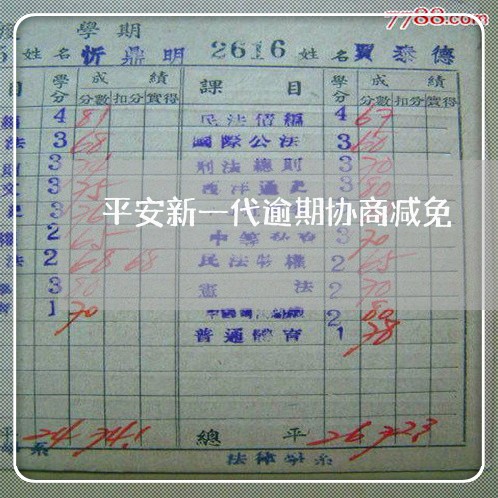 7788.com
學期
姓名 忻鼎明 2616 姓名 賈泰德
目 學分 成績 課目 學分 成績
分數 扣分 實得 分數 扣分 實得
4 81 民法債編 4 67
法 3 68 國際公法 3 60
3 刑法總則 3 70
3 75 西洋通史 3 80
平安新一代逾期协商减免
2 65 3 70
法 2 68 68 民法物權 2 65
3 80 憲法 2 70
1 70 2 80
普通體育 1 78
24 74.1 總平 26 72.3
系 法律學系